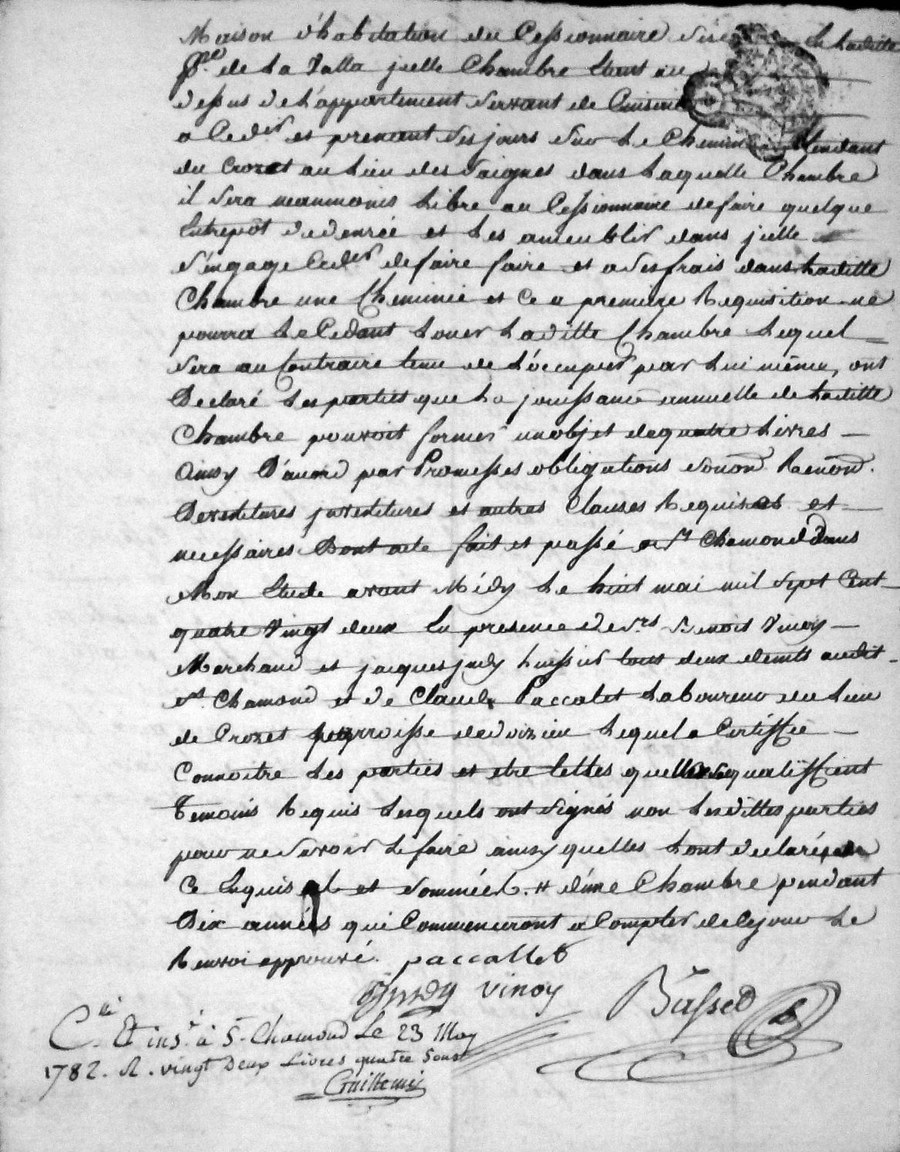 Maison d'habitation du Cessionnaire laditte
psse de La Valla jcelle Chambre Etant au
dessus de L'appartement Servant de Cuisine
a Ceder et prenant Ses jours Sur Le Chemin tendant
du Crozet au Lieu des Saignes dans Laquelle Chambre
il Sera neanmoins Libre au Cessionnaire de faire quelque
Entrepôt de denrée et Les ameublir dans jcelle
S'engage de faire faire et a Ses frais dans Laditte
Chambre une Cheminée et Ce a premiere Requisition ne
pourra Le Cedant Louer Laditte Chambre Lequel
Sera au Contraire tenu de L'occuper par Lui même, ont
Declaré Les parties que La jouissance annuelle de Laditte
Chambre pouvoit former un objet de quatre Livres
Ainsy D'accord par Promesses obligations Renon.
Devetitures jnvetitures et autres Clauses Requises et
necessaires Dont acte fait et passé a St Chamond Dans
Mon Etude avant Midy Le huit mai mil Sept Cent
quatre Vingt deux En presence de Srs Benoit Vinoy
Marchand et jacques judy huissier tous deux dudit
St Chamond et de Claude Paccallet Laboureur du Lieu
de Crozet parroisse de doizieu Lequel a Certiffié
Connoitre Les parties et être telles quelles Se qualiffient
Temoins Requis Lesquels ont Signés non Lesdittes parties
pour ne Savoir Le faire ainsy quelles Lont declaré de
Ce Enquises et Sommées. # d'une Chambre pendant
Dix années qui Commenceront a Compter de Ce jour Le
Renvoi approuvé. paccallet
judy vinoy Basset
C.lé Et ins.é à St Chamond Le 23 May
1782. R. vingt Deux Livres quatre Sous
Guillemin